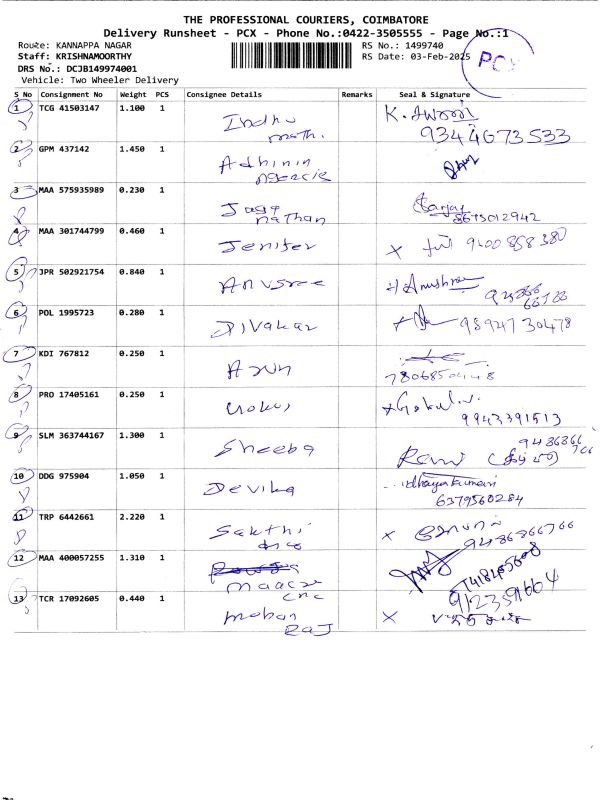 THE PROFESSIONAL COURIERS, COIMBATORE
Delivery Runsheet - PCX - Phone No.:0422-3505555 - Page No.:1
Route: KANNAPPA NAGAR
RS No.: 1499740
Staff: KRISHNAMOORTHY
RS Date: 03-Feb-2025
PCX
DRS No.: DCJB149974001
Vehicle: Two Wheeler Delivery
S No Consignment No Weight PCS Consignee Details Remarks Seal & Signature
1 TCG 41503147 1.100 1 Indhu K.
mathi. 9344673533
2 GPM 437142 1.450 1 Adhinin
agencie
3 MAA 575935989 0.230 1 Jaga Sanjay
nathan 8675012942
4 MAA 301744799 0.460 1 Jenifer X 9400858380
5 JPR 502921754 0.840 1 Anusree
6 POL 1995723 0.280 1 Divakar 9894730478
7 KDI 767812 0.250 1 Arun
8 PRO 17405161 0.250 1 Gokul
9943391513
9 SLM 363744167 1.300 1 Sheeba
10 DDG 975904 1.050 1 Devika Udhayakumari
6379560284
11 TRP 6442661 2.220 1 Sakthi X
9486866766
12 MAA 400057255 1.310 1
13 TCR 17092605 0.440 1 Mohan X
Raj